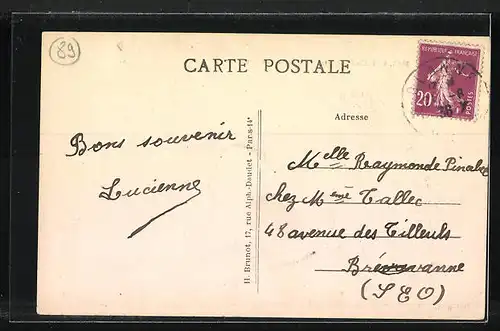 89
CARTE POSTALE
REPUBLIQUE FRANÇAISE
20c
POSTES
Adresse
Bons souvenir
Lucienne
H. Brunot, 17, rue Alph.-Daudet - Paris-14e
Melle Raymonde
chez Mme Tallec
48 avenue des Tilleuls
(S E O)